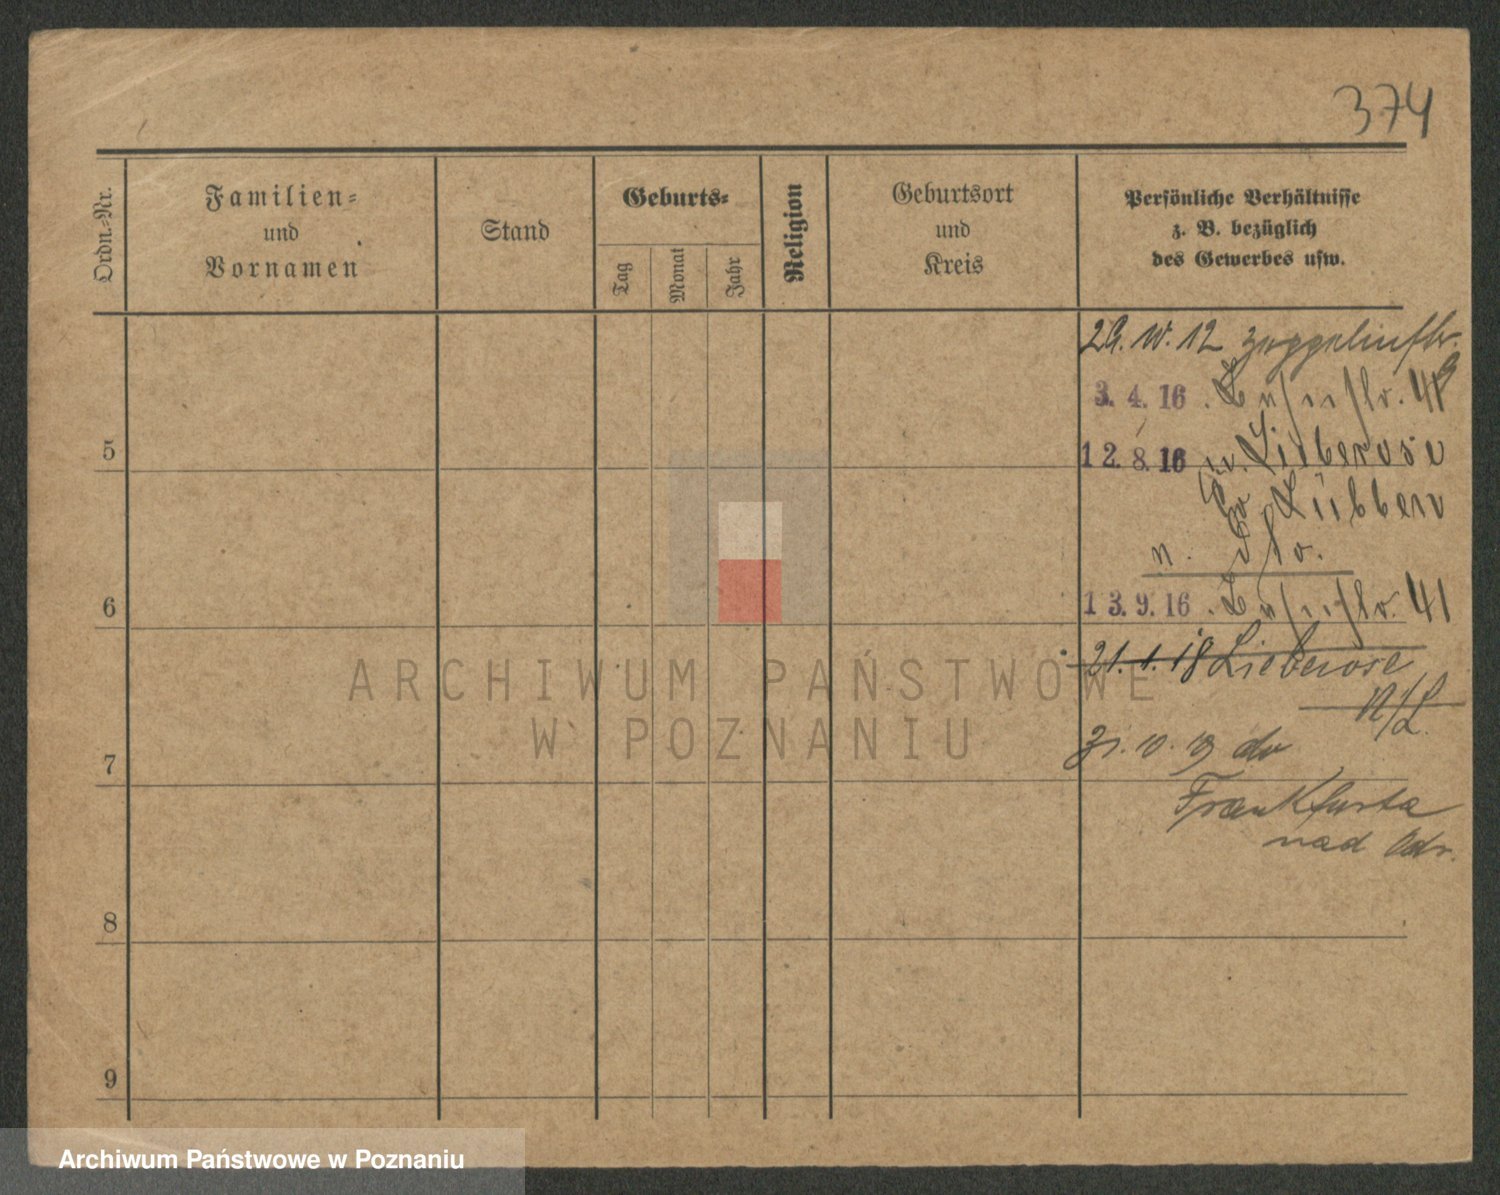 374
Ordn.-Nr.
Familien-
und
Vornamen
Stand
Geburts-
Tag
Monat
Jahr
Religion
Geburtsort
und
Kreis
Persönliche Verhältnisse
z. B. bezüglich
des Gewerbes usw.
12 Zeppelinstr.
3. 4. 16 .
5
12. 8. 16 Lieberose
Lübben
n.
6
13. 9. 16 . 41
21. 1. 18 Lieberose
N/L.
7
do
Frankfurta
nad Odr.
8
9
ARCHIWUM PAŃSTWOWE
W POZNANIU
Archiwum Państwowe w Poznaniu